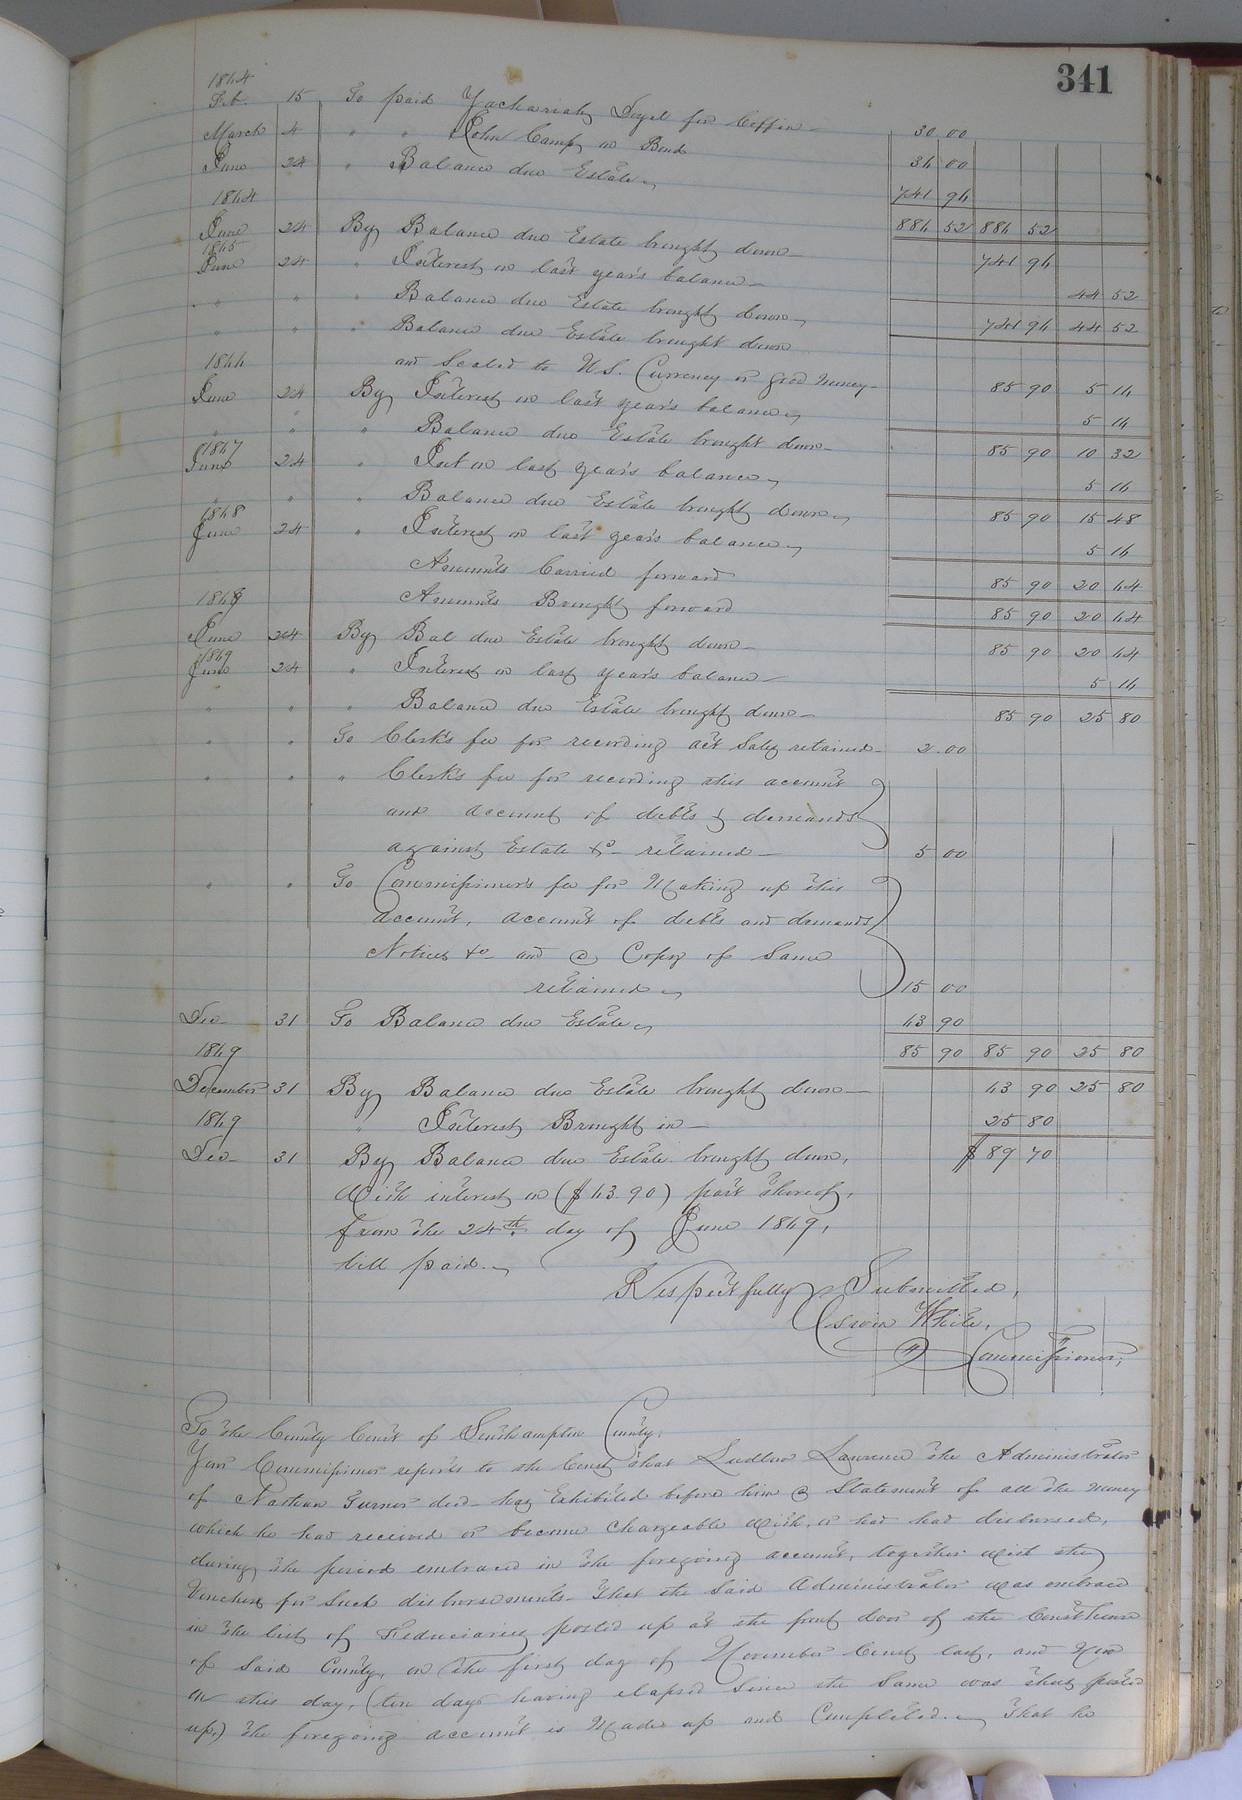 341
1864
Feb. 15 To paid Zachariah Doyel for Coffin 30 00
March 4 " " John Camp on Bond 36 00
June 24 " Balance due Estate 741 96
1864 886 52 886 52
June 24 By Balance due Estate brought down 741 96
1865
June 24 " Interest on last year's balance 44 52
" " " Balance due Estate brought down 741 96 44 52
" " " Balance due Estate brought down
and Scaled to U.S. Currency or good money 85 90 5 16
1866
June 24 By Interest on last year's balance 5 16
" " " Balance due Estate brought down 85 90 10 32
1867
June 24 " Int on last year's balance 5 16
" " " Balance due Estate brought down 85 90 15 48
1868
June 24 " Interest on last year's balance 5 16
Amounts Carried forward 85 90 20 64
Amounts Brought forward 85 90 20 64
1868
June 24 By Bal due Estate brought down 85 90 20 64
1869
June 24 " Interest on last year's balance 5 16
" " " Balance due Estate brought down 85 90 25 80
" " To Clerk's fee for recording act Sales retained 2.00
" " " Clerk's fee for recording this account
and account of debts & demands
against Estate &c retained 5 00
" " To Commissioner's fee for Making up this
account, account of debts and demands
Notices &c and a Copy of Same
retained 15 00
Dec 31 To Balance due Estate 63 90
1869 85 90 85 90 25 80
December 31 By Balance due Estate brought down 63 90 25 80
1869 " Interest Brought in 25 80
Dec 31 By Balance due Estate brought down, $ 89 70
With interest on ($63.90) part thereof,
from the 24th day of June 1869,
till paid.
Respectfully Submitted,
White,
Commissioner,
To the County Court of Southampton County.
Your Commissioner reports to the Court that Ludlow Lawrence the Administrator
of Nathan Turner decd has Exhibited before him a Statement of all the money
which he had received or become Chargeable With, or had had disbursed,
during the period embraced in the foregoing account, together with the
Vouchers for Such disbursements. That the Said Administrator was embraced
in the list of Fiduciaries posted up at the front door of the Court house
of Said County, on the first day of November Court last, and Now
on this day, (ten days having elapsed Since the Same was thus posted
up,) the foregoing account is Made up and Completed. That he